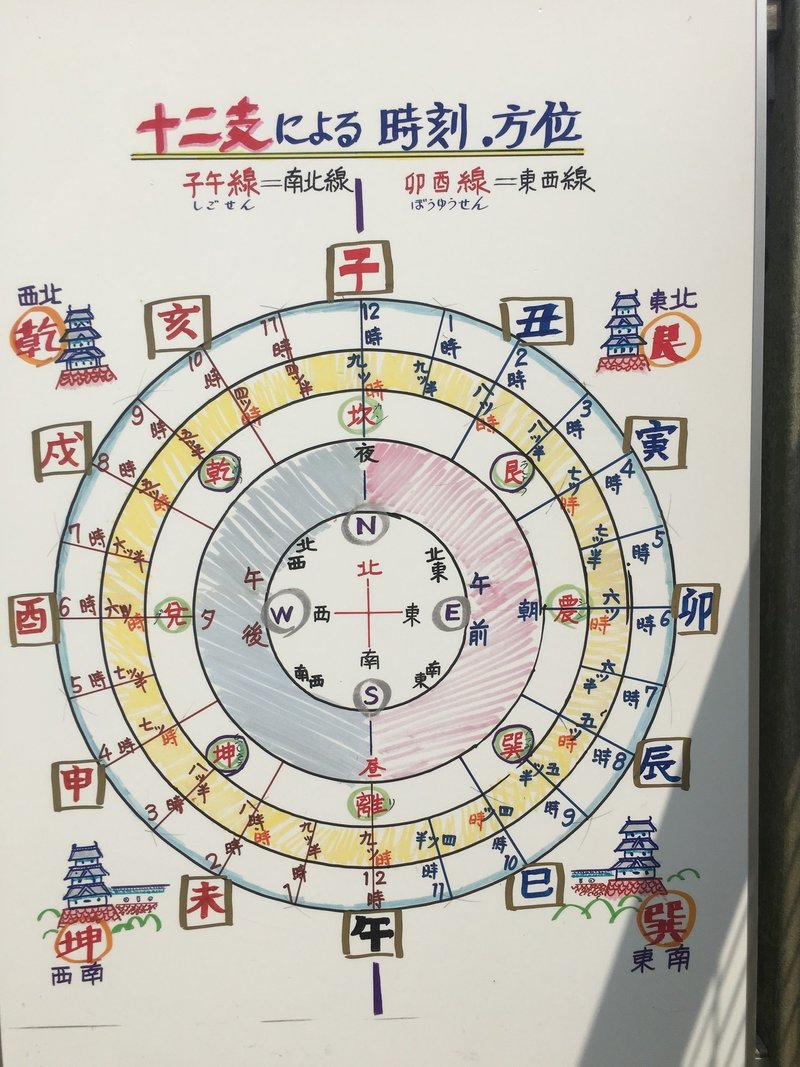 十二支による 時刻.方位
子午線=南北線 卯酉線=東西線
しごせん ぼうゆうせん
子
西北
乾
亥
丑
東北
艮
戌
寅
酉
卯
申
辰
未
巳
午
坤
西南
巽
東南
12時
1時
2時
3時
4時
5時
6時
7時
8時
9時
10時
11時
12時
1時
2時
3時
4時
5時
6時
7時
8時
9時
10時
11時
九ッ時
九ッ半
八ッ時
八ッ半
七ッ時
七ッ半
六ッ時
六ッ半
五ッ時
五ッ半
四ッ時
四ッ半
九ッ時
九ッ半
八ッ時
八ッ半
七ッ時
七ッ半
六ッ時
六ッ半
五ッ時
五ッ半
四ッ時
四ッ半
坎
艮
震
巽
離
坤
兌
乾
夜
朝
昼
夕
午前
午後
N
E
S
W
北
北東
東
東南
南
南西
西
北西